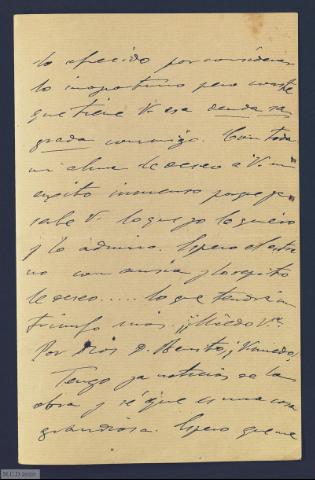 lo ofrecido por considerar
lo inoportuno pero conste
que tiene V. esa deuda sa
grada conmigo. Con toda
mi alma le deseo a V. un
éxito inmenso porque ya
sabe V. lo que yo lo quiero
y lo admiro. Espero el estre
no con ansia y lo repito
le deseo..... lo que tendrá un
triunfo más ¡¡Miedo V.
Por Dios D. Benito,
Tengo ya noticias de la
obra y sé que es una cosa
grandiosa. Espero que me